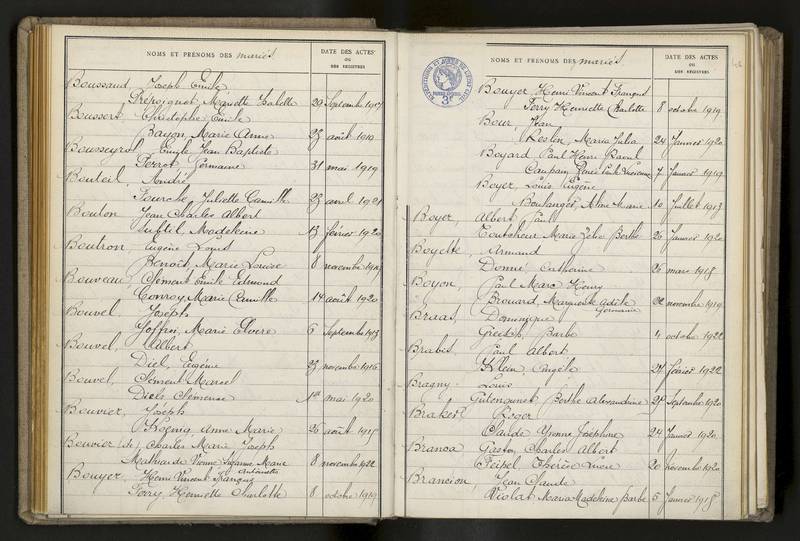 NOMS ET PRÉNOMS DES mariés
DATE DES ACTES
OU
DES REGISTRES
Boussaud Joseph Emile
Prépoignot Mariette Isabelle 29 Septembre 1917
Boussert Christophe Emile
Bayon, Marie Anne 23 août 1919
Bousseyrol Emile Jean Baptiste
Perrot Germaine 31 mai 1919
Bouteil, André
Fourche Juliette Camille 23 avril 1921
Bouton Jean Charles Albert
Subtil, Madeleine 13 février 1920
Boutron Eugène Louis
Benoît Marie Louise 8 novembre
Bouveau, Clément Emile Edmond
Conroy, Marie Camille 14 août 1920
Bouvel, Joseph
Joffin, Marie Elvere 6 Septembre 1913
Bouvel, Albert
Diel, Eugénie 23 novembre 1916
Bouvel, Clément Marcel
Diels Clémence 1er mai 1920
Bouvier, Joseph
Koenig Anne Marie 26 août 1915
Bouvier (de) Charles Marie Joseph
Mathiarde Yvonne Suzanne Marie Antoinette 8 novembre 1922
Bouyer, Henri Vincent François
Ferry Henriette Charlotte 8 octobre 1919
NOMS ET PRÉNOMS DES mariés
DATE DES ACTES
OU
DES REGISTRES
Bouyer Henri Vincent François
Ferry Henriette Charlotte 8 octobre 1919
Bour, Jean
Reslin, Maria Julia 24 Janvier 1920
Boyard Paul Henri Raoul
Caupain Renée Lucienne 7 Janvier 1919
Boyer Louis Eugène
Boulanger Aline Marie 10 Juillet 1913
Boyer, Albert Paul
Toutabeur Marie Zélie Berthe 26 Janvier 1920
Boyette, Armand
Donné, Catherine 26 mars 1918
Boyon, Paul Marc Henry
Brouard, Marguerite Adèle Germaine 22 novembre 1919
Braas, Dominique
Gredt, Barbe 4 octobre 1922
Brabis Paul Albert
Klein Angèle 24 février 1922
Bragny Louis
Gulengunet Berthe Alexandrine 29 Septembre 1920
Braker Roger
Claude Yvonne Joséphine 24 Janvier 1920
Branca Gaston, Charles Albert
Peipel Thérèse Lucie 20 novembre 1920
Brancion, Jean Claude
Violat Maria Madeleine Barbe 5 Janvier 1918